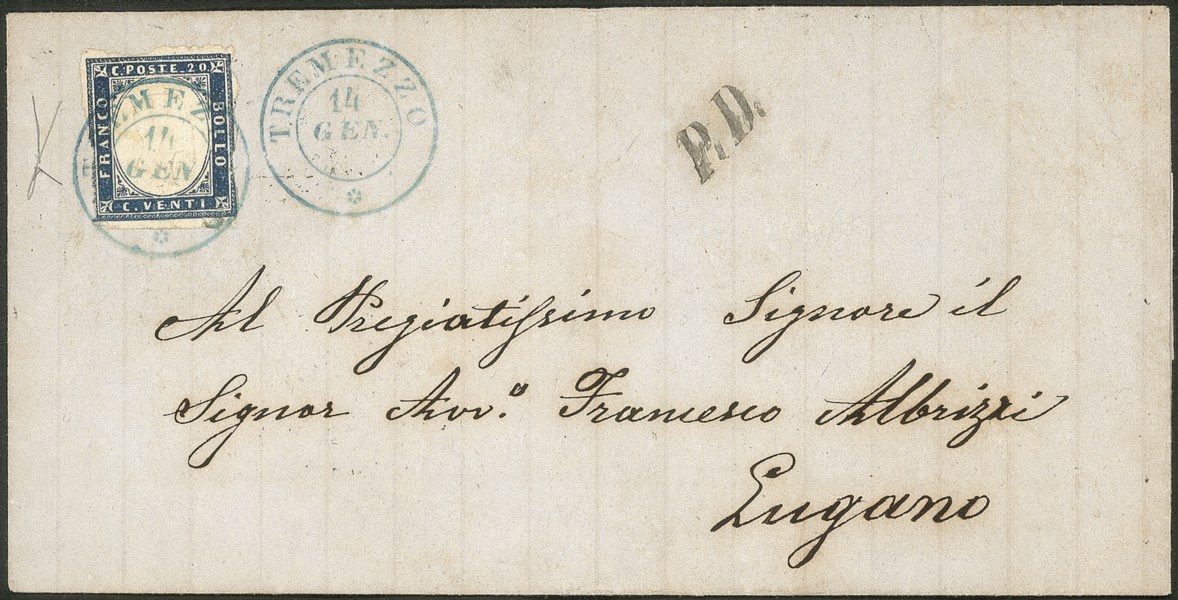 C. POSTE. 20
FRANCO
BOLLO
C. VENTI
EMEZ
14
GEN
TREMEZZO
14
GEN.
P.D.
Al Pregiatissimo Signore il
Signor Avv.º Francesco Albrizzi
Lugano